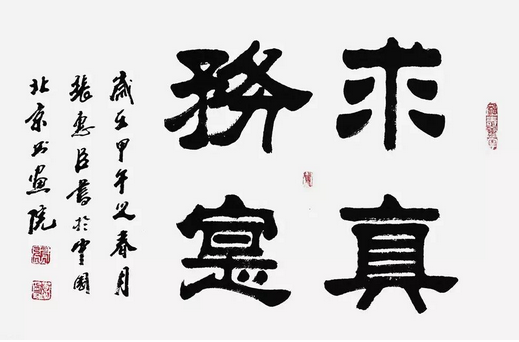 求真
務寔
歲在甲午之春月
張惠臣書於中國
北京书畫院